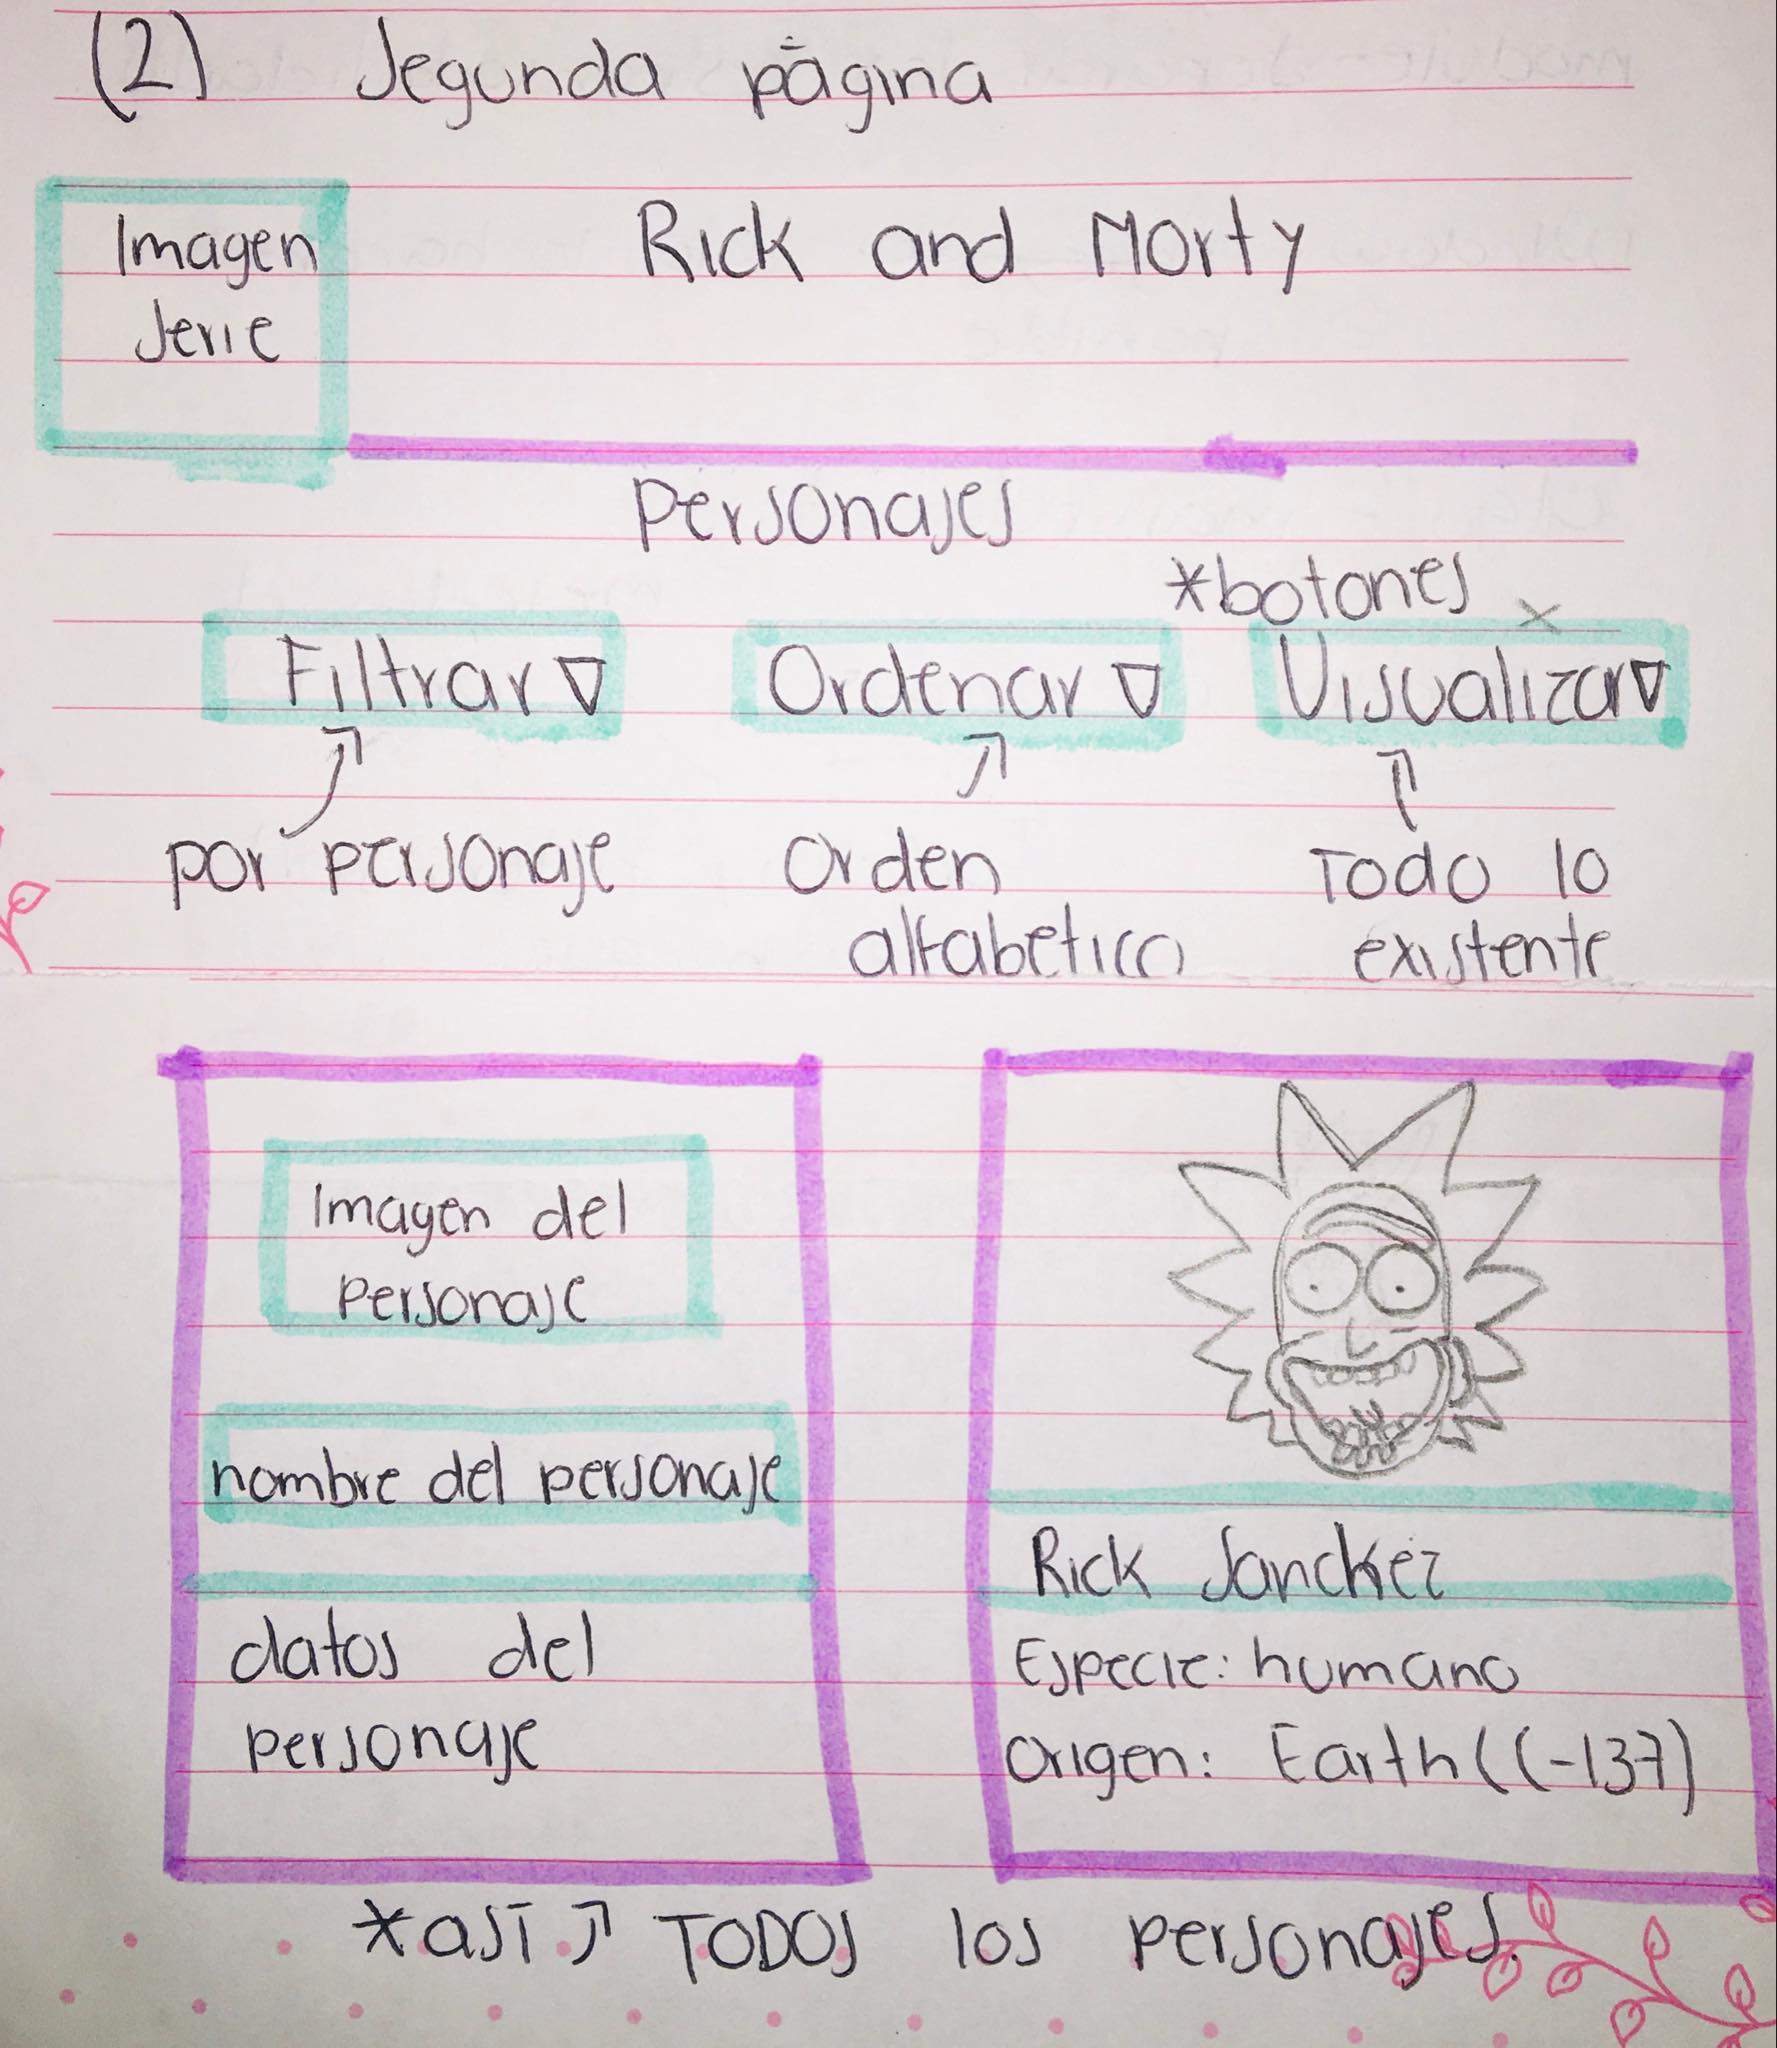 (2) Segunda página
Imagen
Serie
Rick and Morty
Personajes
*botones x
Filtrar ▽ Ordenar ▽ Visualizar ▽
por personaje
Orden
alfabetico
Todo lo
existente
Imagen del
Personaje
nombre del personaje
datos del
personaje
Rick Sanchez
Especie: humano
Origen: Earth ((-137)
*así ↗ TODOS los personajes.